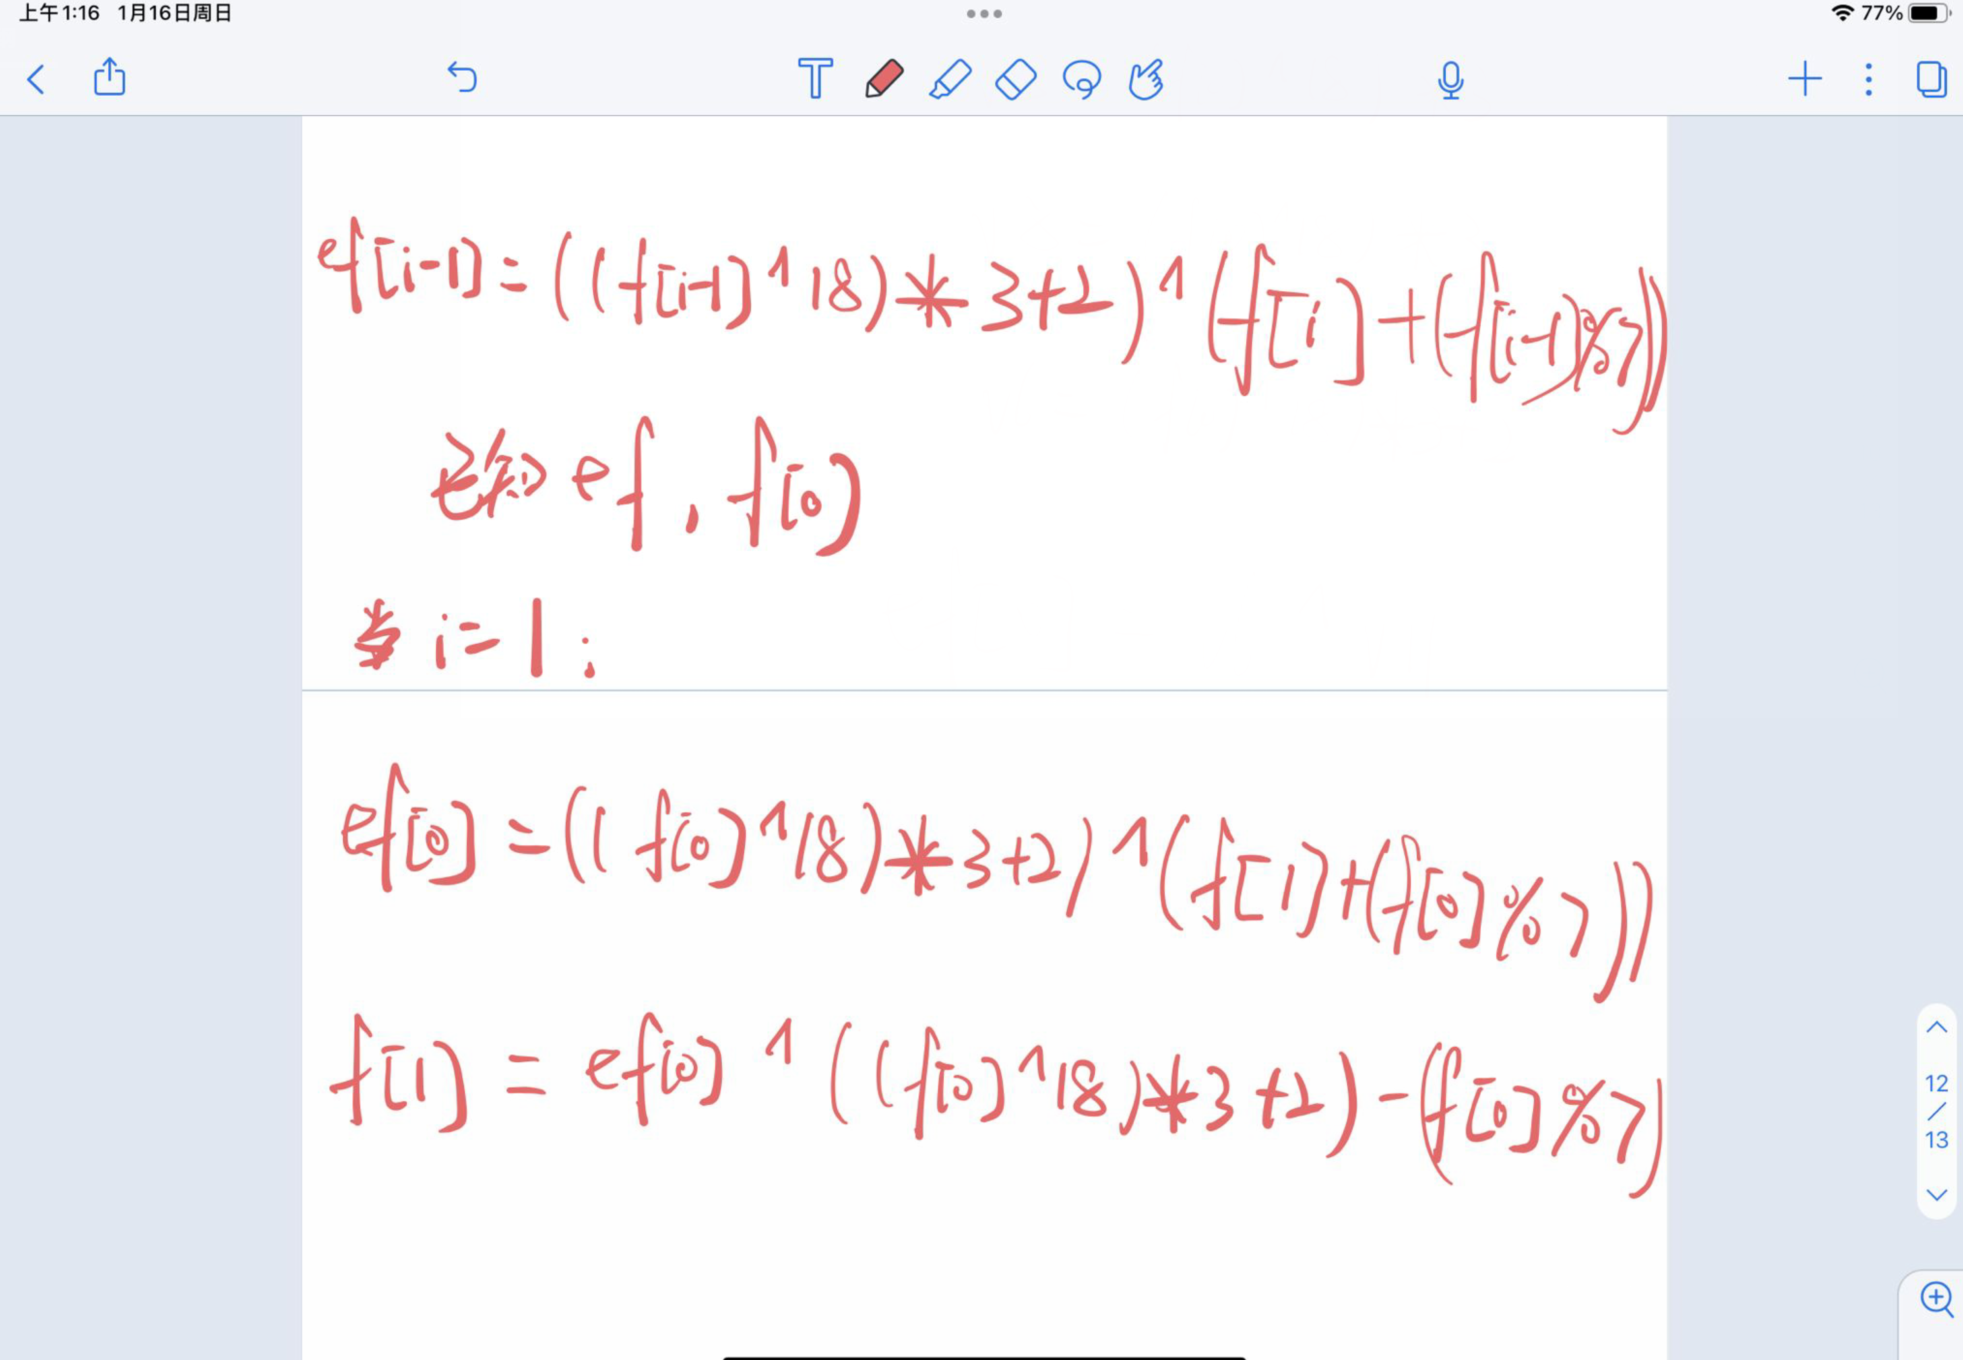 上午1:16 1月16日周日
77%
T
ef[i-1]=((f[i-1]^18)*3+2)^(f[i]+(f[i-1]%7))
已知ef,f[0]
当i=1:
ef[0]=((f[0]^18)*3+2)^(f[1]+(f[0]%7))
f[1]=ef[0]^((f[0]^18)*3+2)-(f[0]%7)
12
/
13